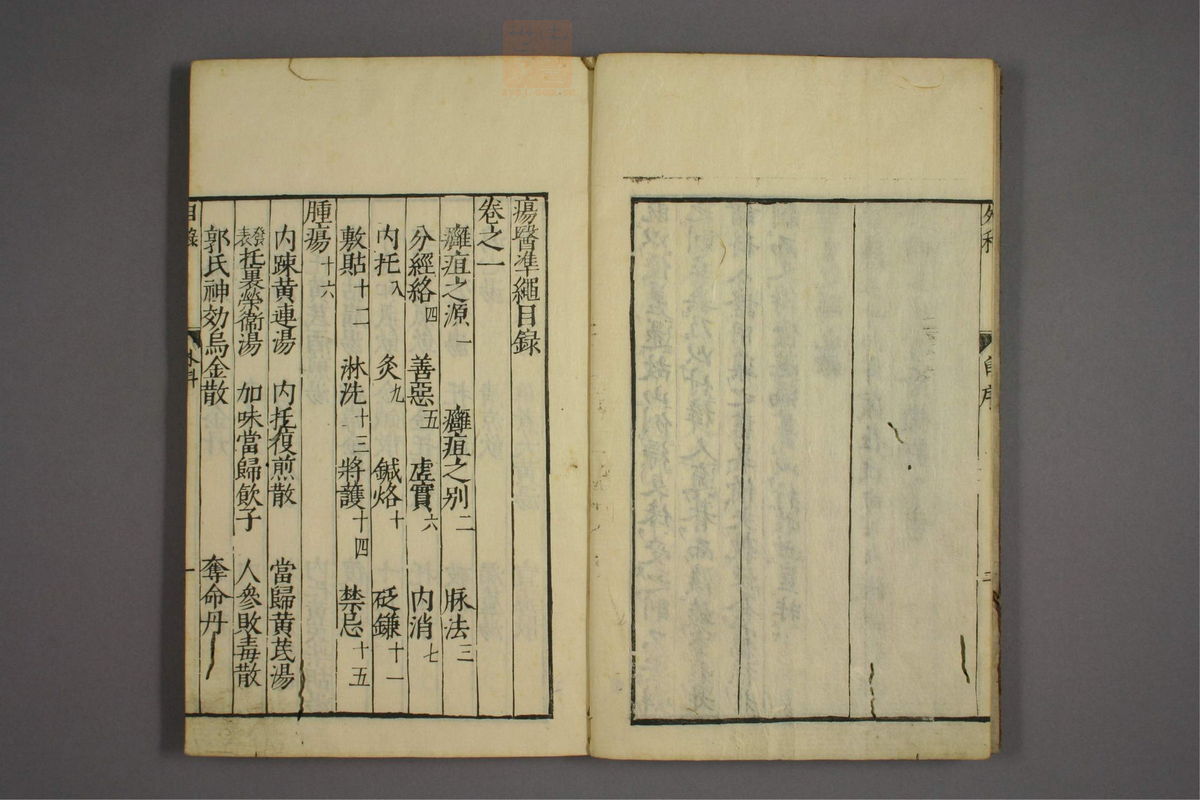 外科
自序
二
瘍醫準繩目錄
卷之一
癰疽之源一 癰疽之别二 脉法三
分經絡四 善惡五 虛實六 内消七
内托八 灸九 鍼烙十 砭鎌十一
敷貼十二 淋洗十三 將護十四 禁忌十五
腫瘍十六
内踈黄連湯 内托復煎散 當歸黄茋湯
發表托裏榮衞湯 加味當歸飲子 人參敗毒散
郭氏神効烏金散 奪命丹
目錄
外科
一